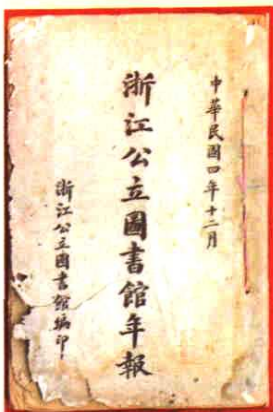 中華民國四年十二月
浙江公立圖書館年報
浙江公立圖書館編印